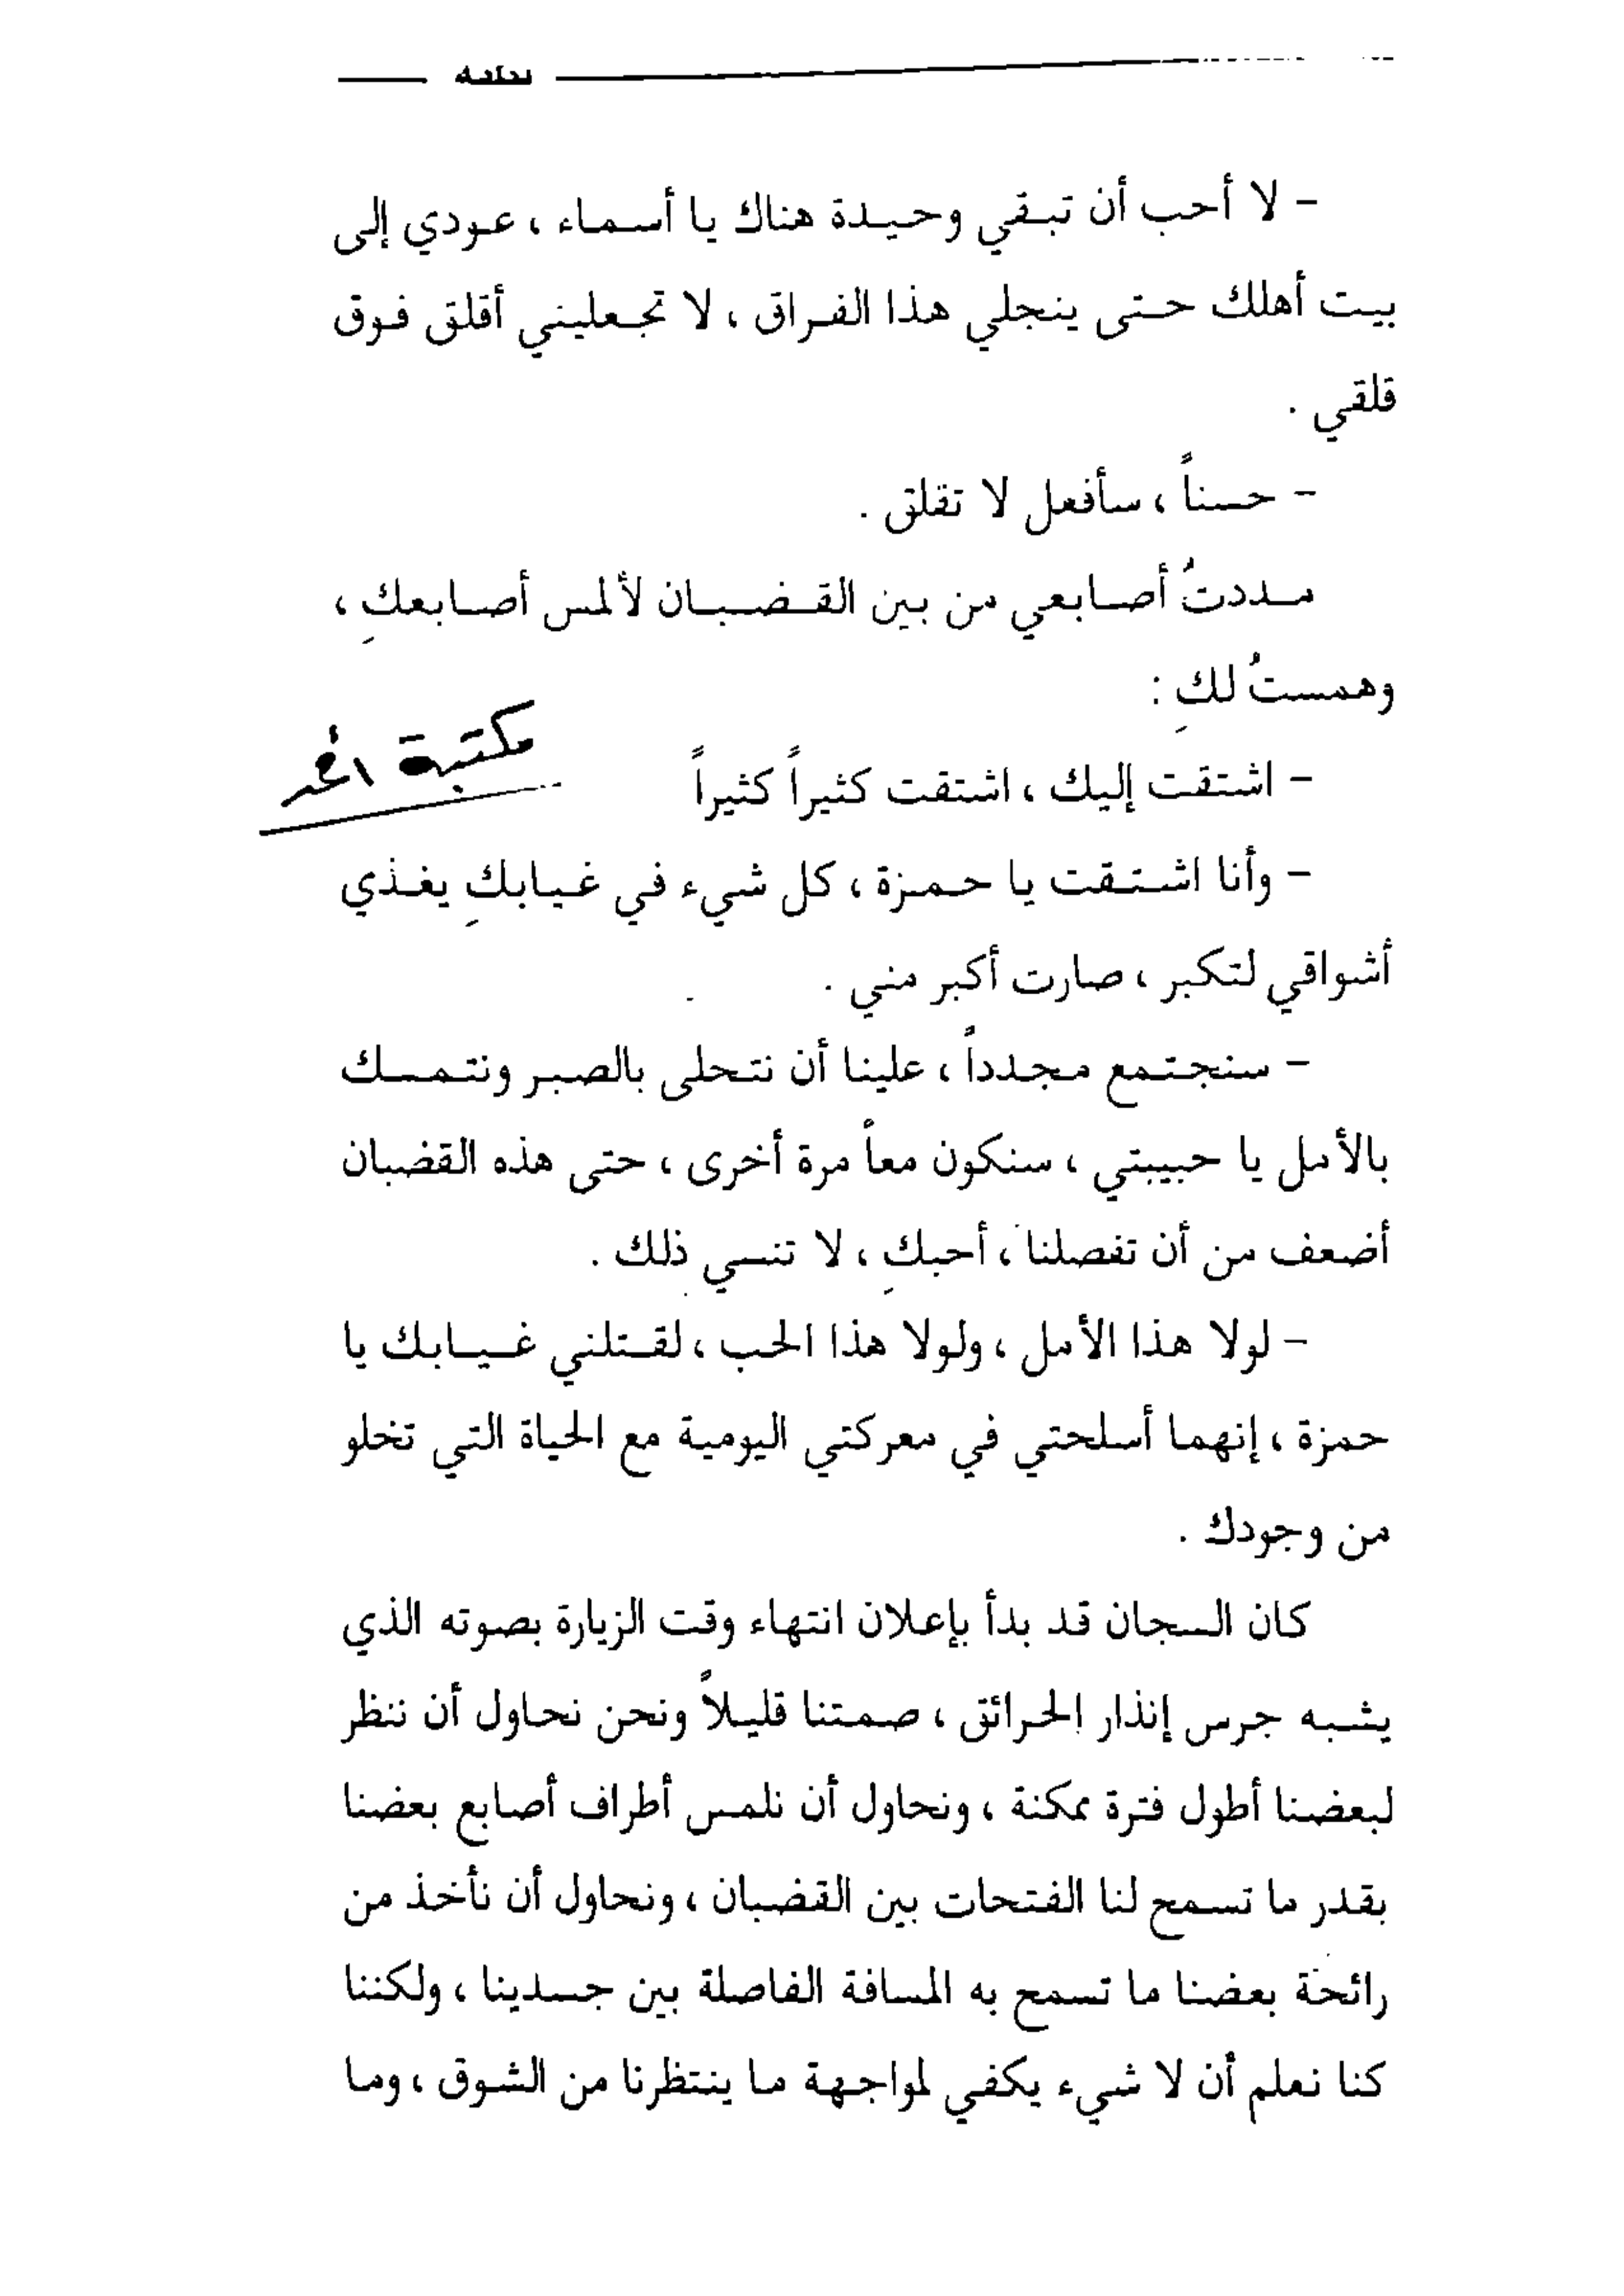 – لا أحب أن تبقي وحيدة هناك يا أسماء ، عودي إلى
بيت أهلك حتى ينجلي هذا الفراق ، لا تجعليني أقلق فوق
قلقي .
– حسناً ، سأفعل لا تقلق .
مددتُ أصابعي من بين القضبان لألمس أصابعكِ ،
وهمستُ لكِ :
مكتبة
– اشتقت إليك ، اشتقت كثيراً كثيراً
– وأنا اشتقت يا حمزة ، كل شيء في غيابكِ يغذي
أشواقي لتكبر ، صارت أكبر مني .
– سنجتمع مجدداً ، علينا أن نتحلى بالصبر ونتمسك
بالأمل يا حبيبتي ، سنكون معاً مرة أخرى ، حتى هذه القضبان
أضعف من أن تفصلنا ، أحبكِ ، لا تنسي ذلك .
– لولا هذا الأمل ، ولولا هذا الحب ، لقتلني غيابك يا
حمزة ، إنهما أسلحتي في معركتي اليومية مع الحياة التي تخلو
من وجودك .
كان السجان قد بدأ بإعلان انتهاء وقت الزيارة بصوته الذي
يشبه جرس إنذار الحرائق ، صمتنا قليلاً ونحن نحاول أن ننظر
لبعضنا أطول فترة ممكنة ، ونحاول أن نلمس أطراف أصابع بعضنا
بقدر ما تسمح لنا الفتحات بين القضبان ، ونحاول أن نأخذ من
رائحة بعضنا ما تسمح به المسافة الفاصلة بين جسدينا ، ولكننا
كنا نعلم أن لا شيء يكفي لمواجهة ما ينتظرنا من الشوق ، وما